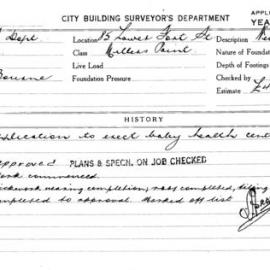 CITY BUILDING SURVEYOR'S DEPARTMENT APPLI
YEA
Dept Location 15 Lower Fort St Description
Class Millers Point Nature of Foundat
Live Load Depth of Footings
Foundation Pressure Checked by
£4
HISTORY
pplication to erect baby health cent
approved PLANS & SPECN. ON JOB CHECKED
ork commenced.
ickwork nearing completion, roof completed,
mpleted to approval. Marked off list